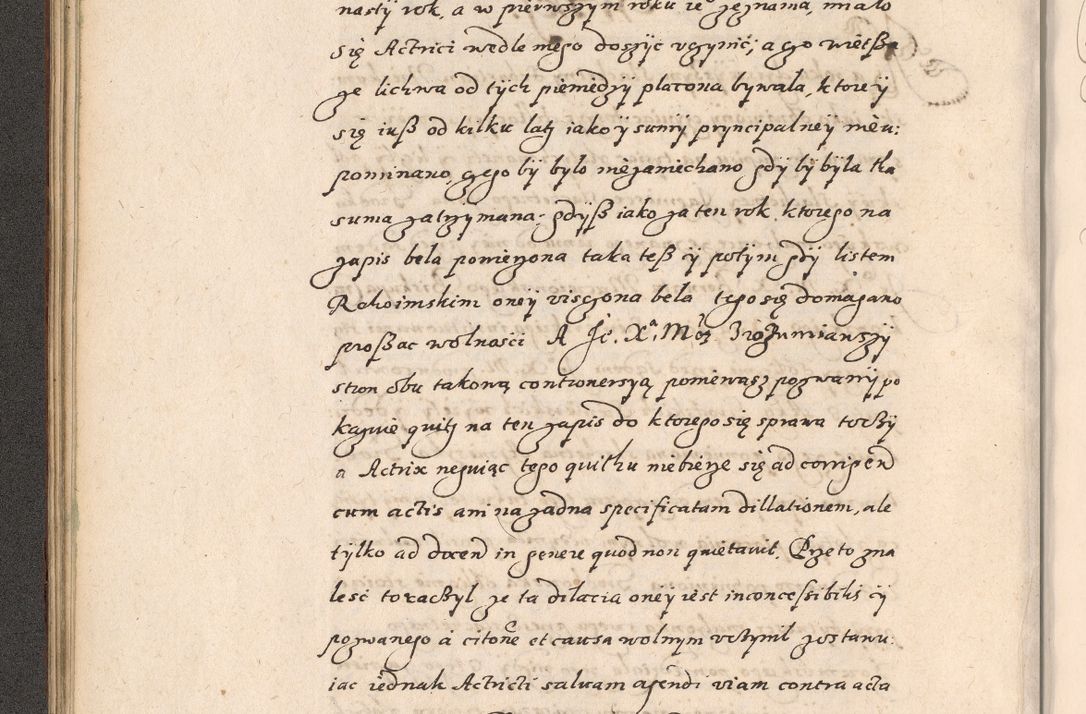 nasty rok, a w pierwszym roku ie° zeznania, miało
się Actrici wedle niego doszyc vczynić; a czo wietßa
ze lichwa od tych pieniedzy płacona bywała, ktorey
się iuß od kilku latʒ iako y sumy pryncipalney nieu:
pominano, czego by było niezaniechano gdy by była tka
suma zatrzymana: gdyß iako za ten rok ktorego na
zapis beła pomieʒona taka teß y potym gdy listem
Rakoimskim oney visczona beła tego się domagano
proßac wolnosci A Je°. Xª. Mśc zrozumiawszy
stron obu takową controuersyą, poniewasz pozwany po
kazuie quitʒ na ten zapis do ktorego się sprawa toczy
a Actrix neguiąc tego quithu niebierze się ad corrigend
cum actis ani na zadna specificatam dillationem, ale
tylko ad docend in genere quod non quietauit. Przeto zna
lesc to raczył ze ta dilacia oney iest inconcessibilis y
pozwanego á citone et causa wolnym vczynił zostawu:
iac iednak Actrici saluam agendi viam contra acta